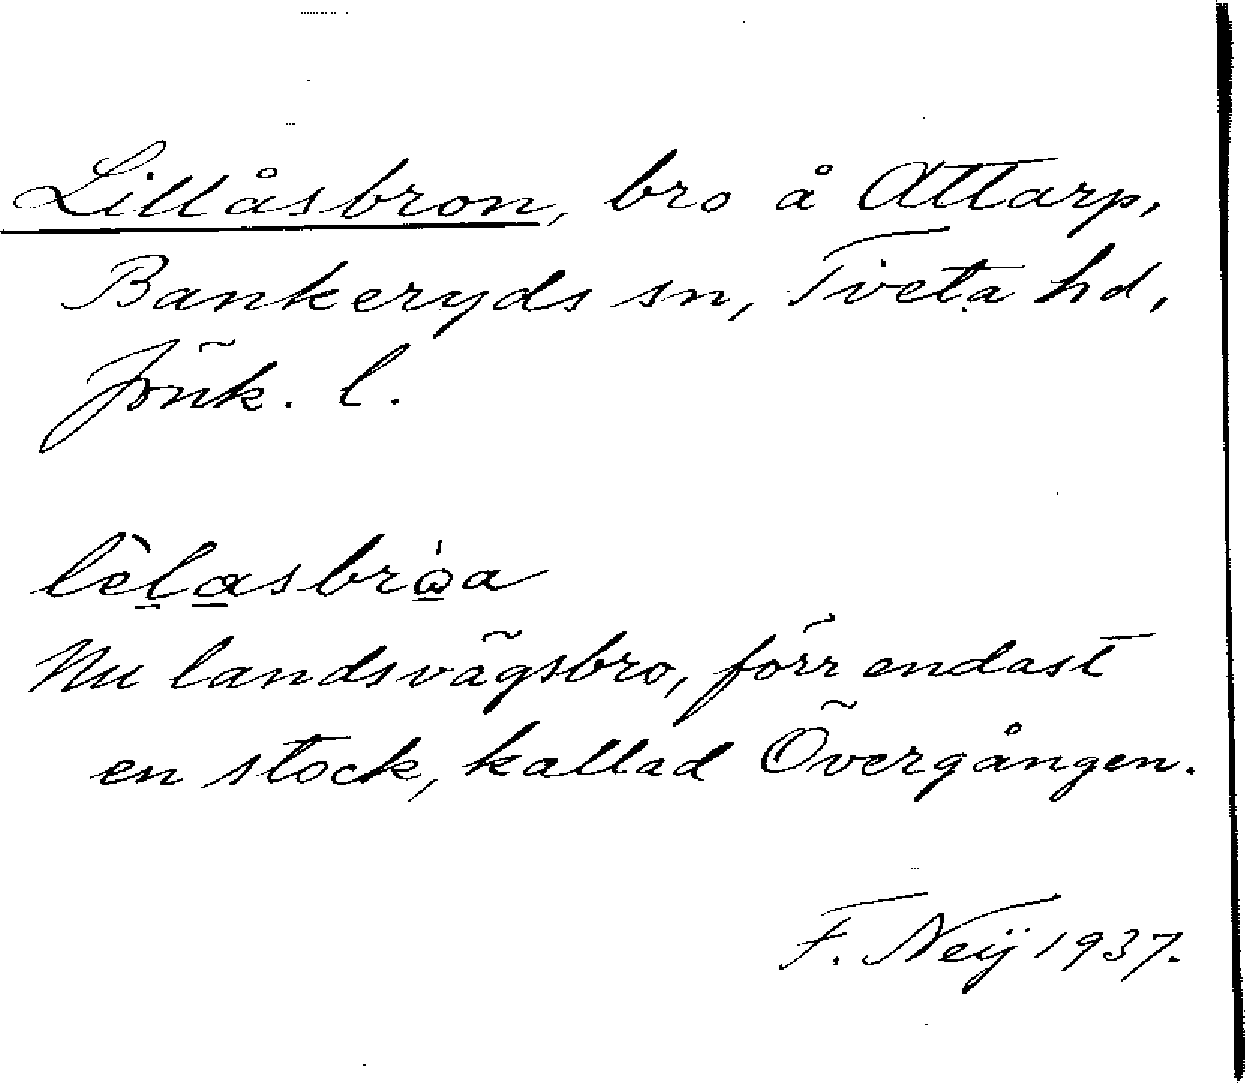 Lillåsbron, bro å Attarp,
Bankeryds sn, Tveta hd,
Jönk. l.
lèl̠a̠sbrὼ̠a
Nu landsvägsbro, förr endast
en stock, kallad Övergången.
F. Neij 1937.